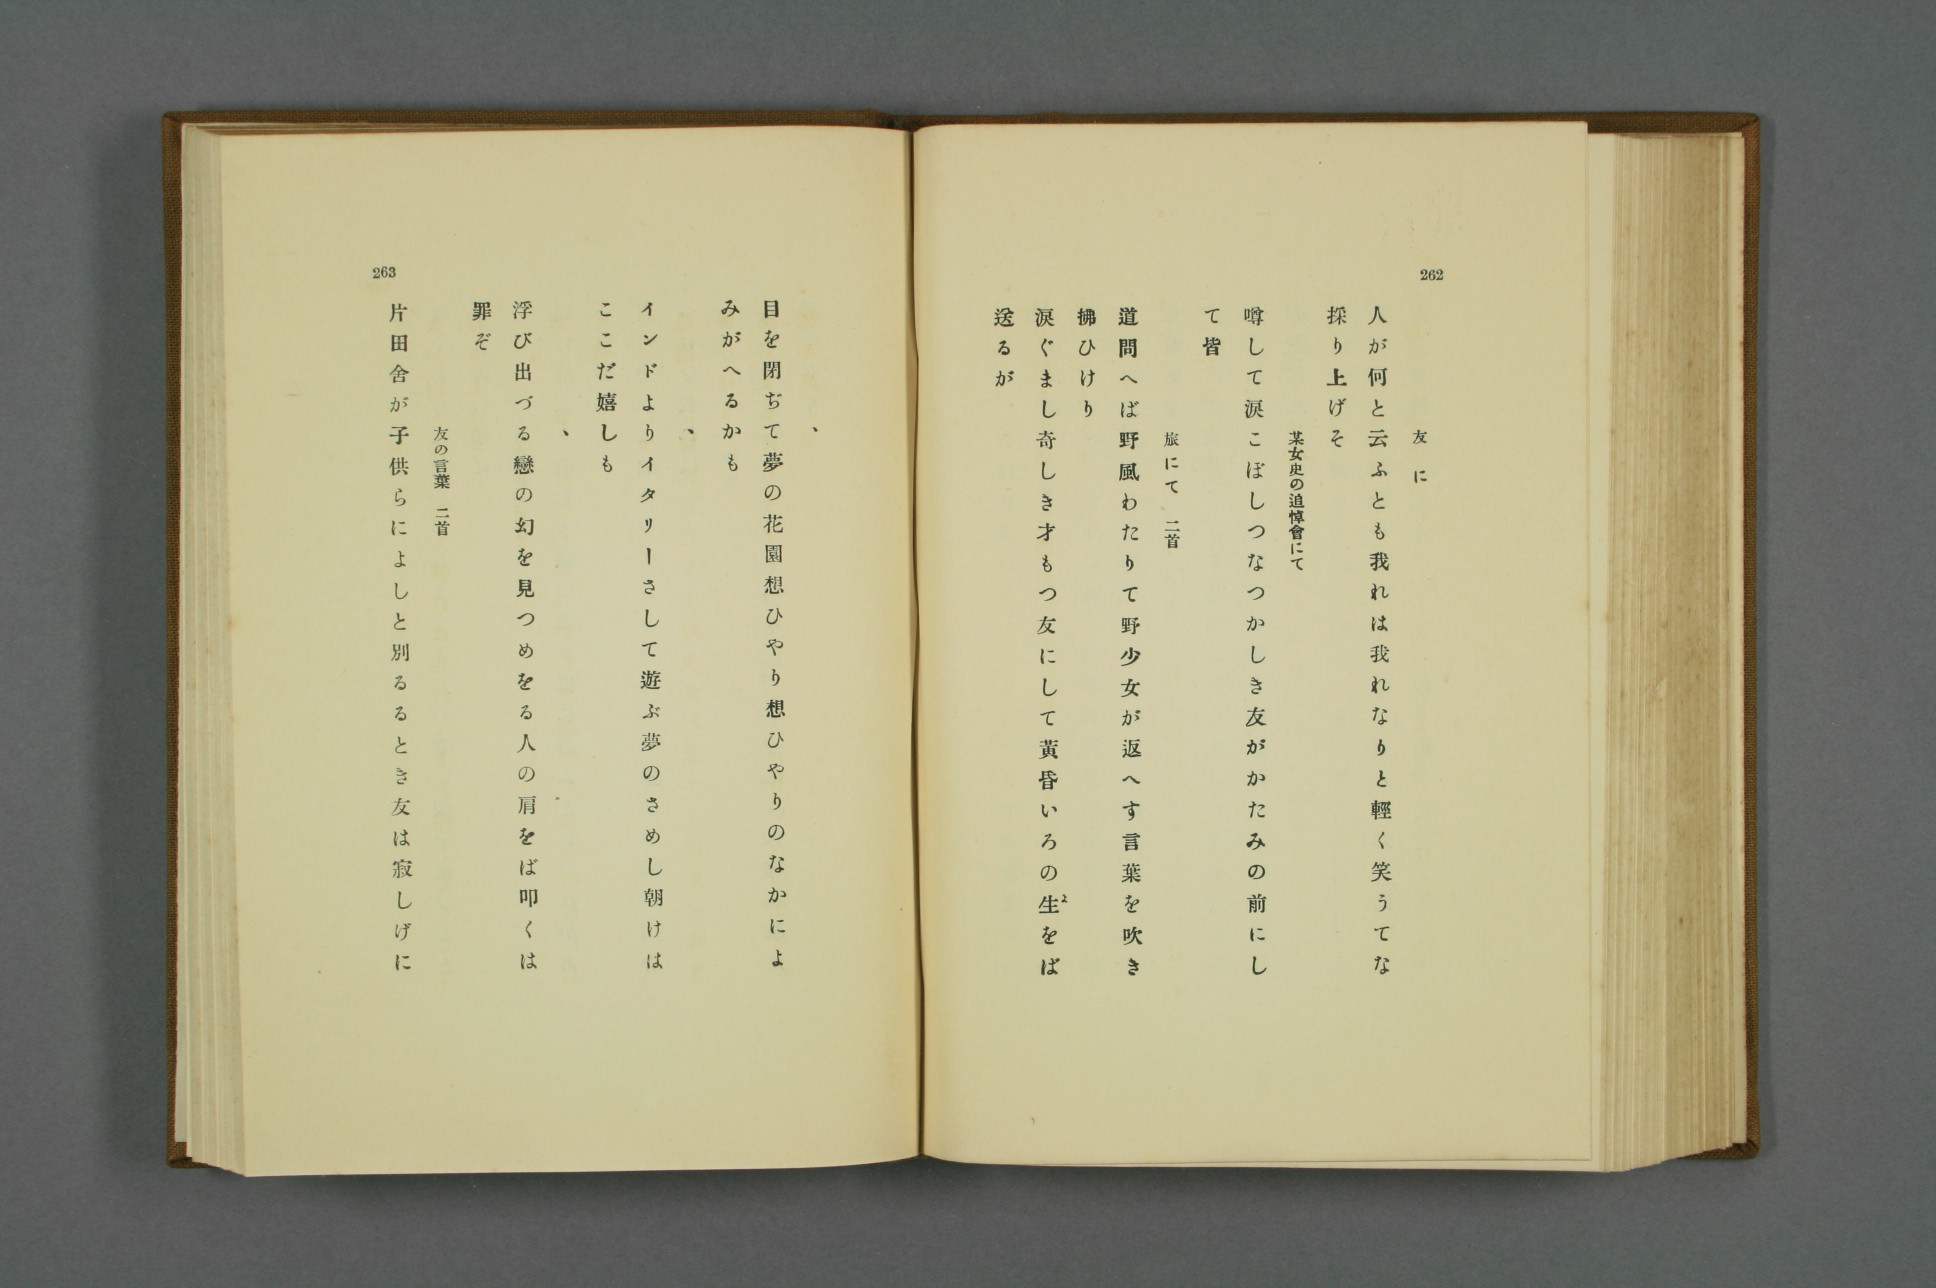 262
友に
人が何と云ふとも我れは我れなりと輕く笑うてな
採り上げそ
某女史の追悼會にて
噂して涙こぼしつなつかしき友がかたみの前にし
て皆
旅にて 二首
道問へば野風わたりて野少女が返へす言葉を吹き
拂ひけり
涙ぐまし奇しき才もつ友にして黃昏いろの生をば
送るが
263
、
目を閉ぢて夢の花園想ひやり想ひやりのなかによ
みがへるかも
、
インドよりイタリーさして遊ぶ夢のさめし朝けは
ここだ嬉しも
、
浮び出づる戀の幻を見つめをる人の肩をば叩くは
罪ぞ
友の言葉 二首
片田舍が子供らによしと別るるとき友は寂しげに